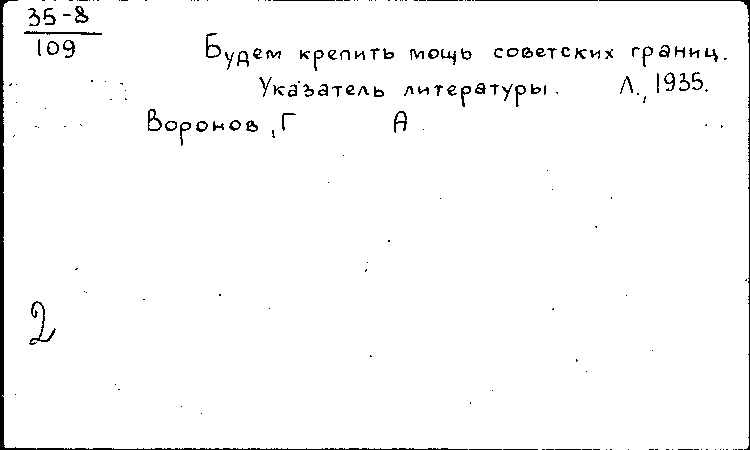 35-8
109
Будем крепить мощь советских границ.
Указатель литературы. Л., 1935.
Воронов, Г А
2